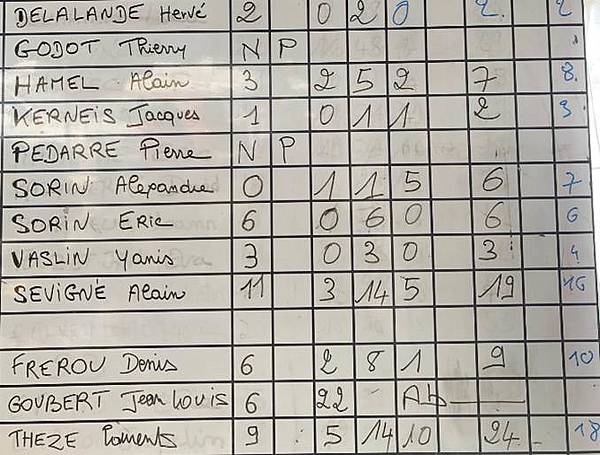 DELALANDE Hervé 2 0 2 0 2 2
GODOT Thierry N P
HAMEL Alain 3 2 5 2 7 8
KERNEIS Jacques 1 0 1 1 2 3
PEDARRE Pierre N P
SORIN Alexandre 0 1 1 5 6 7
SORIN Eric 6 0 6 0 6 6
VASLIN Yanis 3 0 3 0 3 4
SEVIGNÉ Alain 11 3 14 5 19 16
FREROU Denis 6 2 8 1 9 10
GOUBERT Jean Louis 6 22 Ab
THEZE 9 5 14 10 24 18